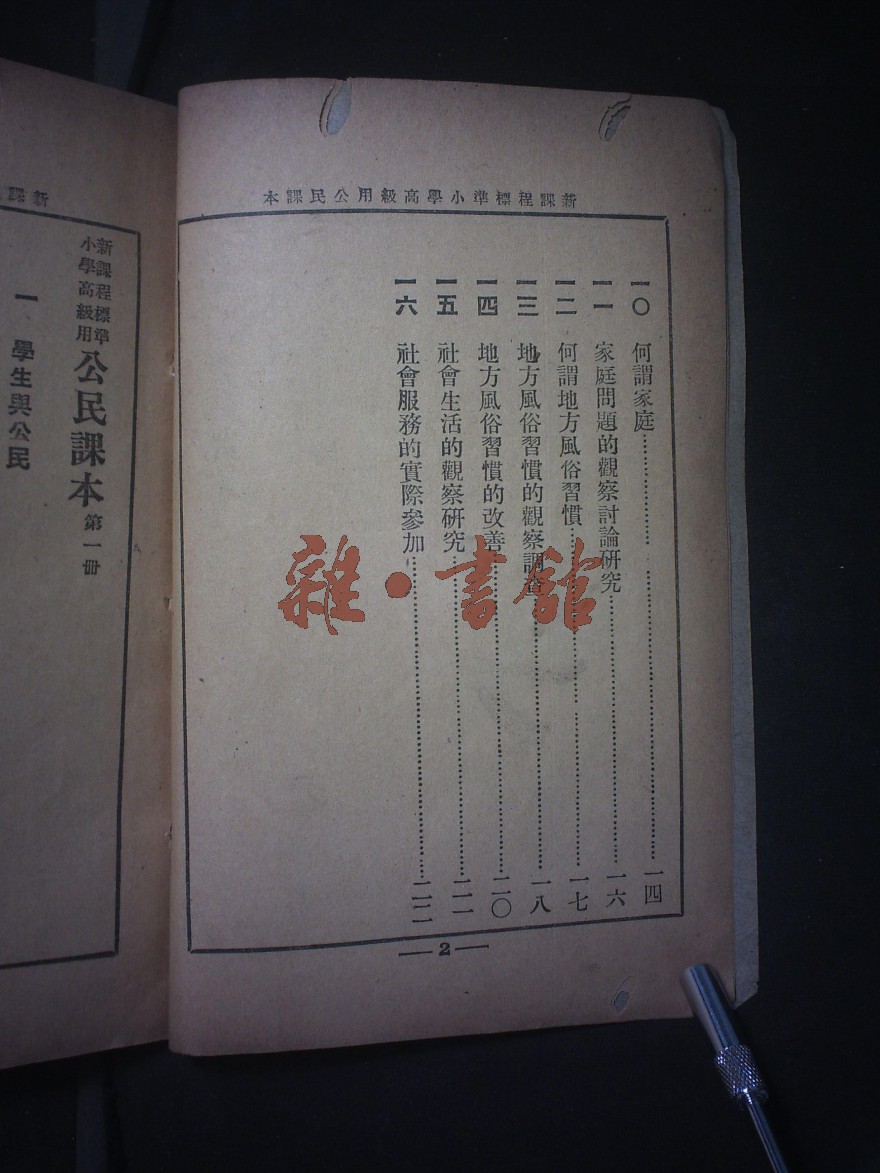 新課程標準小學高級用公民課本
一〇 何謂家庭……一四
一一 家庭問題的觀察討論研究……一六
一二 何謂地方風俗習慣……一七
一三 地方風俗習慣的觀察調查……一八
一四 地方風俗習慣的改善……二〇
一五 社會生活的觀察研究……二一
一六 社會服務的實際參加……二二
—2—
新課
新課程標準
小學高級用
公民課本 第一冊
一 學生與公民
雜·書館